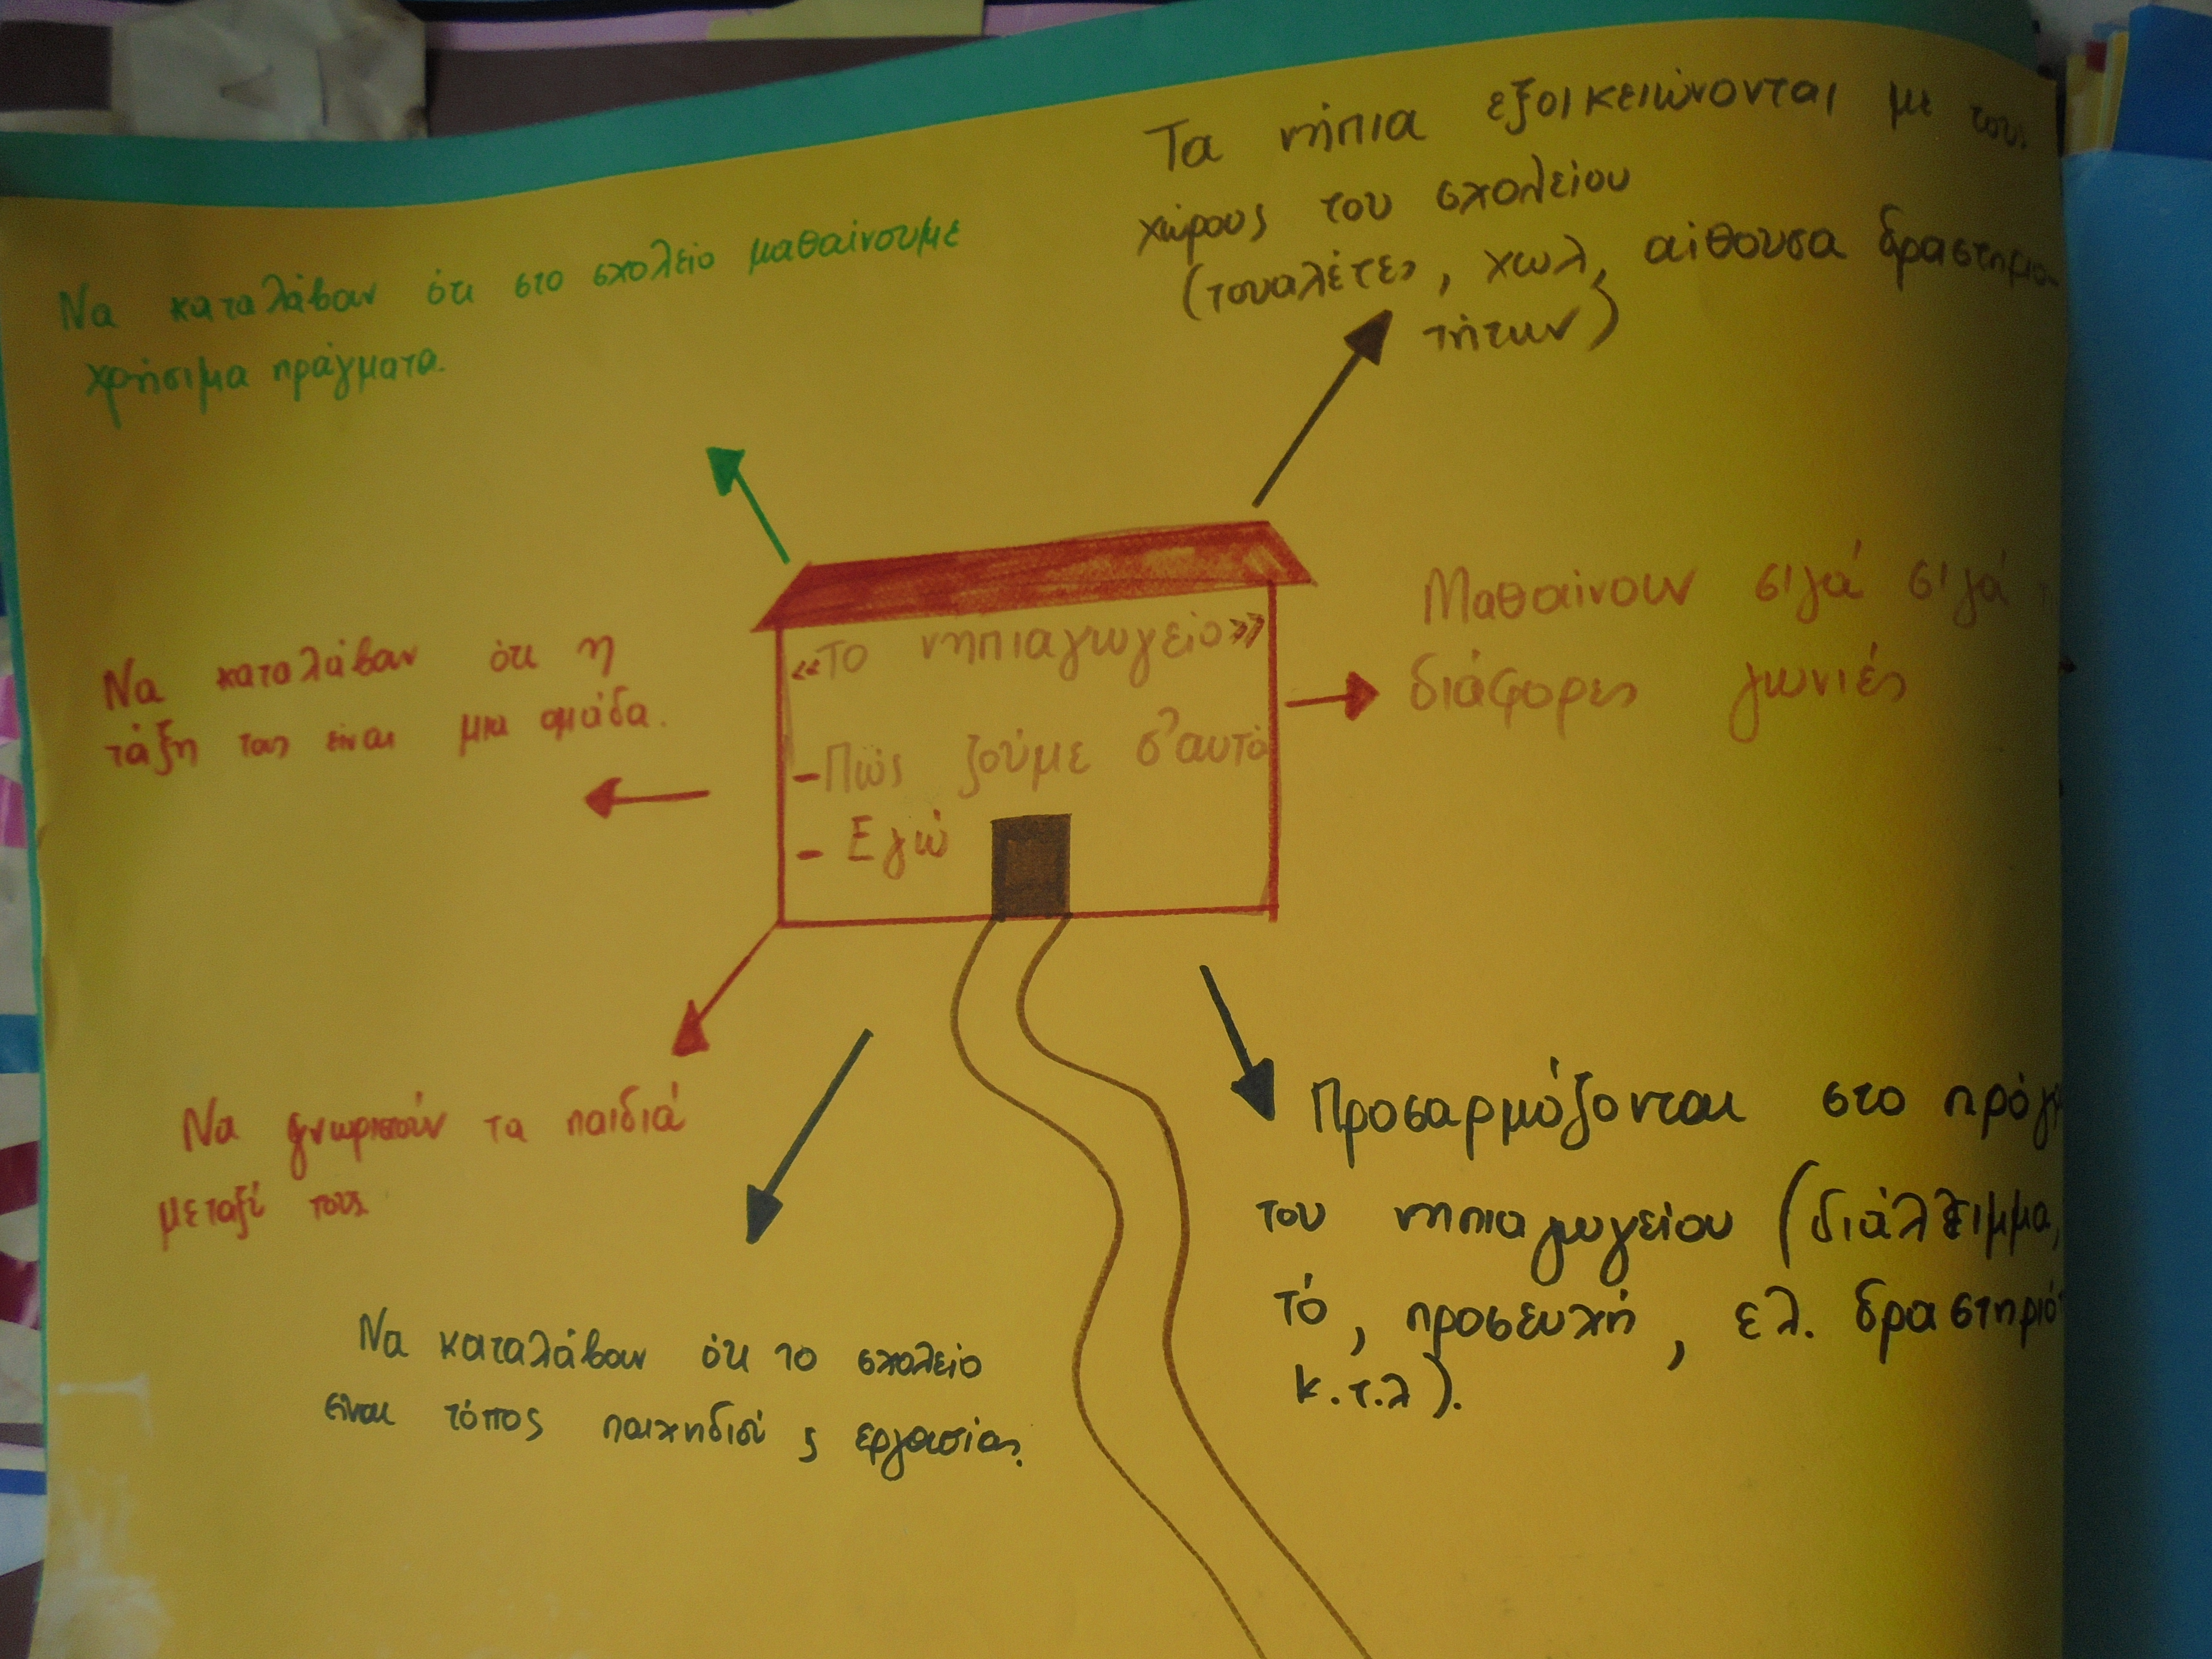 Να καταλάβουν ότι στο σχολείο μαθαίνουμε
χρήσιμα πράγματα.
Τα νήπια εξοικειώνονται με τους
χώρους του σχολείου
(τουαλέτες, χωλ, αίθουσα δραστηριο
τήτων)
Να καταλάβουν ότι η
τάξη τους είναι μια ομάδα.
«Το νηπιαγωγείο»
-Πώς ζούμε σ'αυτό
- Εγώ
Μαθαίνουν σιγά σιγά
διάφορες γωνιές
Να γνωριστούν τα παιδιά
μεταξύ τους
Να καταλάβουν ότι το σχολείο
είναι τόπος παιχνιδιού ς εργασίας.
Προσαρμόζονται στο πρόγ
του νηπιαγωγείου (διάλειμμα,
τό, προσευχή, ελ. δραστηριό
κ.τ.λ).